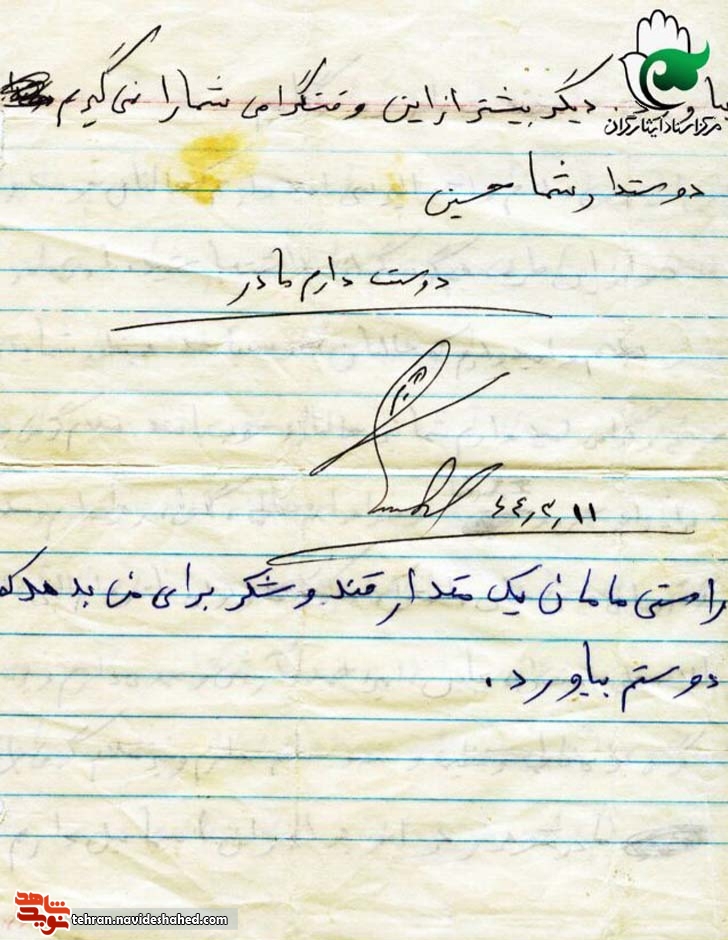 دیگر بیشتر از این وقت گرامی شما را نمی گیرم
مرکز اسناد ایثارگران
دوستدار شما حسین
دوست دارم مادر
۶۴٫۳٫۱۱
راستی مامان یک مقدار قند و شکر برای من بدهد که
دوستم بیاورد.
نوید شاهد
tehran.navideshahed.com